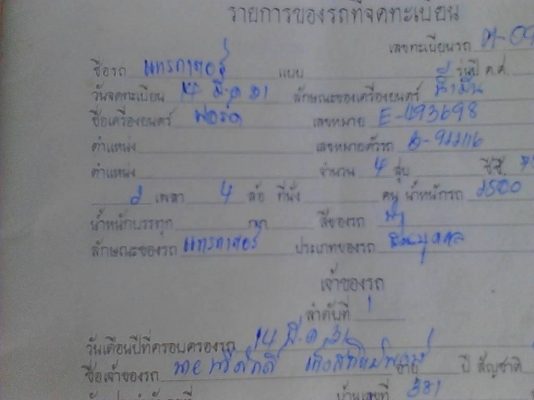 รายการของรถที่จดทะเบียน
เลขทะเบียนรถ ต-09
ชื่อรถ แทรกเตอร์ แบบ รุ่นปี ค.ศ.
วันจดทะเบียน 14 มี.ค 31 ลักษณะของเครื่องยนต์
ชื่อเครื่องยนต์ ฟอร์ด เลขหมาย E-493698
ตำแหน่ง เลขหมายตัวรถ
ตำแหน่ง จำนวน 4 สูบ ซีซี.
2 เพลา 4 ล้อ ที่นั่ง คน น้ำหนักรถ 2500
น้ำหนักบรรทุก กก สีของรถ ฟ้า
ลักษณะของรถ แทรกเตอร์ ประเภทของรถ ส่วนบุคคล
เจ้าของรถ
ลำดับที่ 1
วันเดือนปีที่ครอบครองรถ 14 มี.ค 31
ชื่อเจ้าของรถ นายทวีศักดิ์ อายุ ปี สัญชาติ
บ้านเลขที่ 381